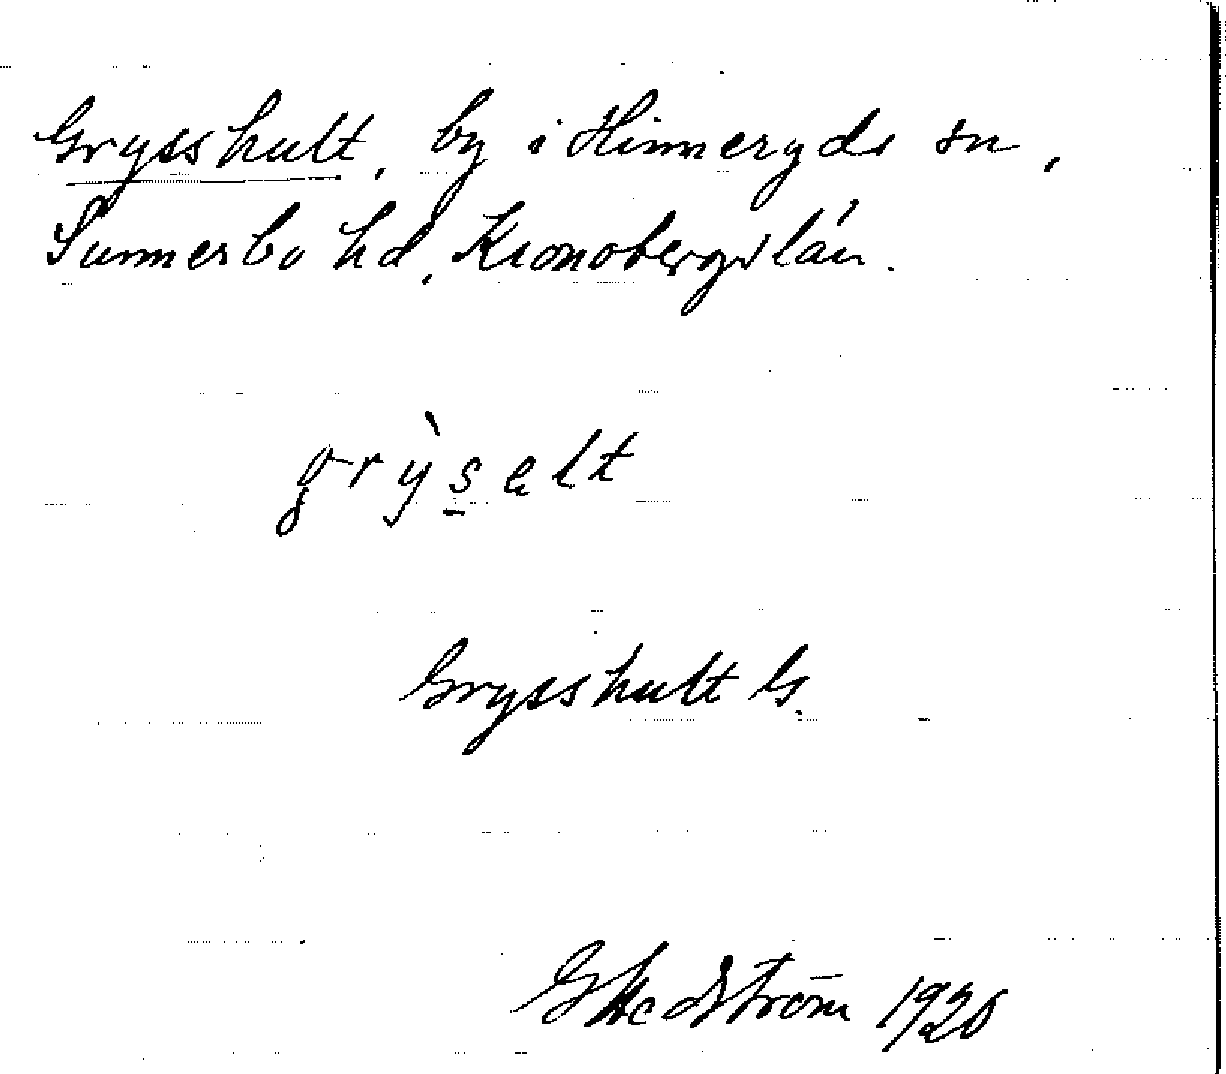 Grysshult, by i Hinneryds sn,
Sunnerbo hd, Kronobergs län.
grỳs̲elt
Grysshult G.
G Hedström 1920